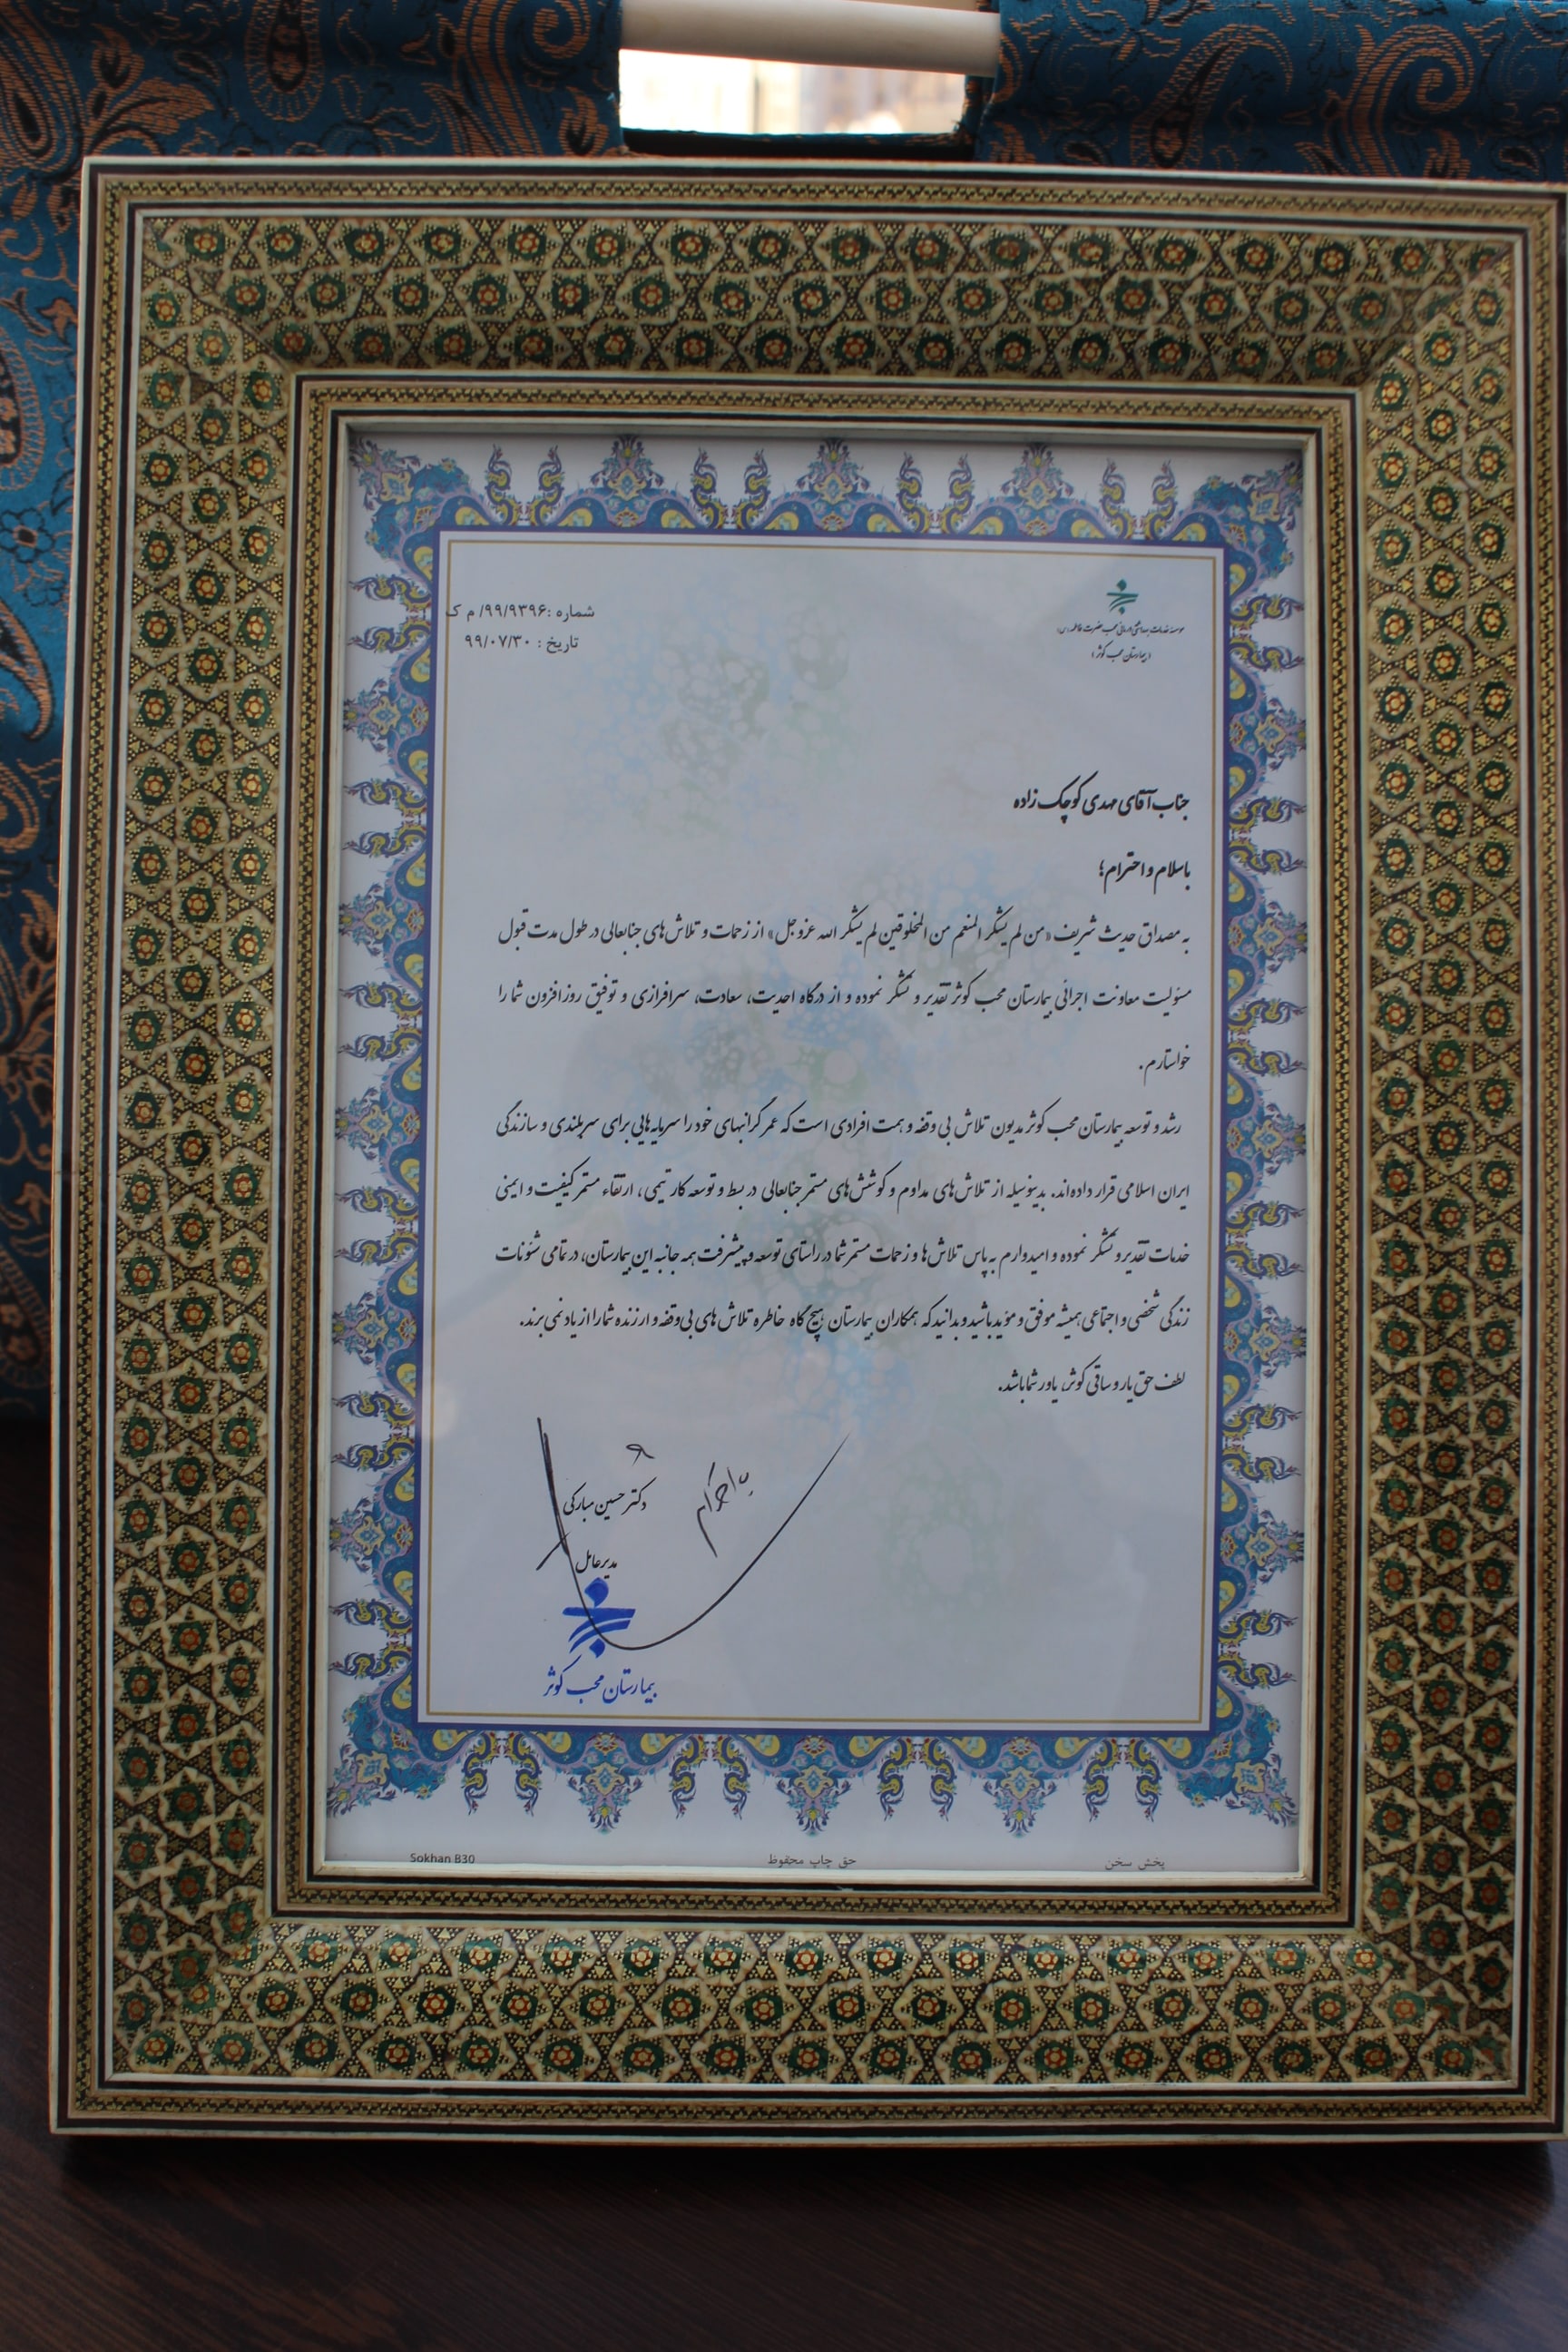 موسسه خدمات بهداشتی درمانی محب حضرت فاطمه (س)
(بیمارستان محب کوثر)
شماره :۹۹/۹۳۹۶/ م ک
تاریخ : ۹۹/۰۷/۳۰
جناب آقای مهدی کوچک زاده
باسلام و احترام؛
به مصداق حدیث شریف «من لم یشکر المنعم من المخلوقین لم یشکر الله عزوجل» از زحمات و تلاش‌های جنابعالی در طول مدت قبول
مسئولیت معاونت اجرائی بیمارستان محب کوثر تقدیر و تشکر نموده و از درگاه احدیت، سعادت، سرافرازی و توفیق روزافزون شما را
خواستارم.
رشد و توسعه بیمارستان محب کوثر مدیون تلاش بی وقفه و همت افرادی است که عمر گرانبهای خود را سرمایه‌هایی برای سربلندی و سازندگی
ایران اسلامی قرار داده‌اند. بدینوسیله از تلاش‌های مداوم و کوشش‌های مستمر جنابعالی در بسط و توسعه کار تیمی، ارتقاء مستمر کیفیت و ایمنی
خدمات تقدیر و تشکر نموده و امیدوارم به پاس تلاش‌ها و زحمات مستمر شما در راستای توسعه و پیشرفت همه جانبه این بیمارستان، در تمامی شئونات
زندگی شخصی و اجتماعی همیشه موفق و مؤید باشید و بدانید که همکاران بیمارستان هیچ گاه خاطره تلاش های بی‌وقفه و ارزنده شما را از یاد نمی برند.
لطف حق یار و ساقی کوثر، یاور شما باشد.
با احترام
دکتر حسین مبارکی
مدیرعامل
بیمارستان محب کوثر
پخش سخن
حق چاپ محفوظ
Sokhan B30